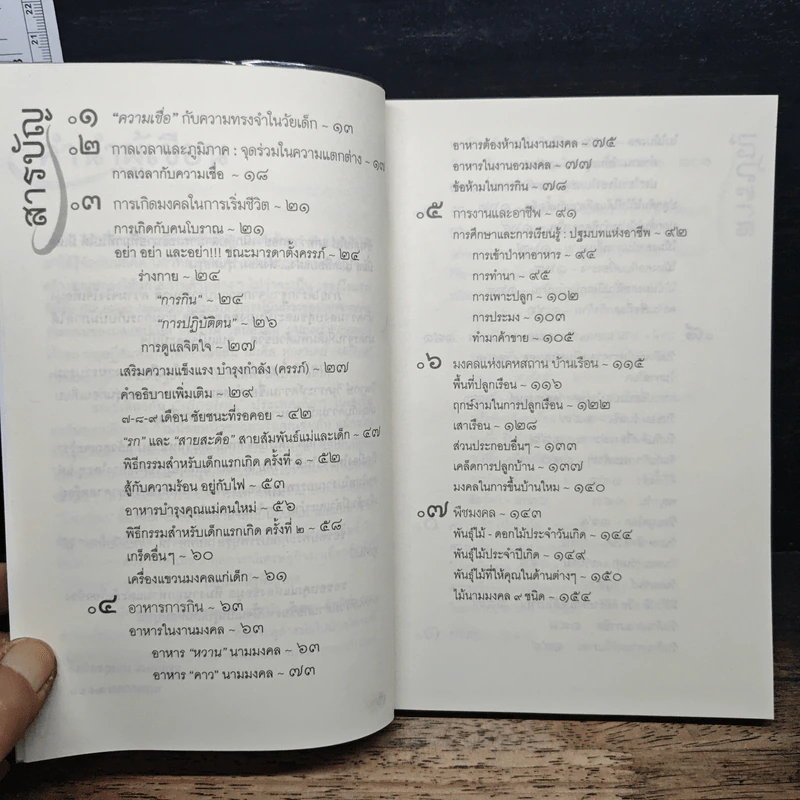 สารบัญ
๐๑ “ความเชื่อ” กับความทรงจำในวัยเด็ก ~ ๑๓
๐๒ กาลเวลาและภูมิภาค : จุดร่วมในความแตกต่าง ~ ๑๗
กาลเวลากับความเชื่อ ~ ๑๘
๐๓ การเกิดมงคลในการเริ่มชีวิต ~ ๒๑
การเกิดกับคนโบราณ ~ ๒๑
อย่า อย่า และอย่า!!! ขณะมารดาตั้งครรภ์ ~ ๒๔
ร่างกาย ~ ๒๔
“การกิน” ~ ๒๔
“การปฏิบัติตน” ~ ๒๖
การดูแลจิตใจ ~ ๒๗
เสริมความแข็งแรง บำรุงกำลัง (ครรภ์) ~ ๒๗
คำอธิบายเพิ่มเติม ~ ๒๙
๗-๘-๙ เดือน ชัยชนะที่รอคอย ~ ๔๒
“รก” และ “สายสะดือ” สายสัมพันธ์แม่และเด็ก ~ ๔๗
พิธีกรรมสำหรับเด็กแรกเกิด ครั้งที่ ๑ ~ ๕๒
สู้กับความร้อน อยู่กับไฟ ~ ๕๓
อาหารบำรุงคุณแม่คนใหม่ ~ ๕๖
พิธีกรรมสำหรับเด็กแรกเกิด ครั้งที่ ๒ ~ ๕๘
เกร็ดอื่นๆ ~ ๖๐
เครื่องแขวนมงคลแก่เด็ก ~ ๖๑
๐๔ อาหารการกิน ~ ๖๓
อาหารในงานมงคล ~ ๖๓
อาหาร “หวาน” นามมงคล ~ ๖๓
อาหาร “คาว” นามมงคล ~ ๗๓
อาหารต้องห้ามในงานมงคล ~ ๗๕
อาหารในงานอวมงคล ~ ๗๗
ข้อห้ามในการกิน ~ ๗๘
๐๕ การงานและอาชีพ ~ ๙๑
การศึกษาและการเรียนรู้ : ปฐมบทแห่งอาชีพ ~ ๙๒
การเข้าป่าหาอาหาร ~ ๙๔
การทำนา ~ ๙๕
การเพาะปลูก ~ ๑๐๒
การประมง ~ ๑๐๓
ทำมาค้าขาย ~ ๑๐๕
๐๖ มงคลแห่งเคหสถาน บ้านเรือน ~ ๑๑๕
พื้นที่ปลูกเรือน ~ ๑๑๖
ฤกษ์งามในการปลูกเรือน ~ ๑๒๒
เสาเรือน ~ ๑๒๘
ส่วนประกอบอื่นๆ ~ ๑๓๓
เคล็ดการปลูกบ้าน ~ ๑๓๗
มงคลในการขึ้นบ้านใหม่ ~ ๑๔๐
๐๗ พืชมงคล ~ ๑๔๓
พันธุ์ไม้ - ดอกไม้ประจำวันเกิด ~ ๑๔๔
พันธุ์ไม้ประจำปีเกิด ~ ๑๔๙
พันธุ์ไม้ที่ให้คุณในด้านต่างๆ ~ ๑๕๐
ไม้นามมงคล ๙ ชนิด ~ ๑๕๔
21
22